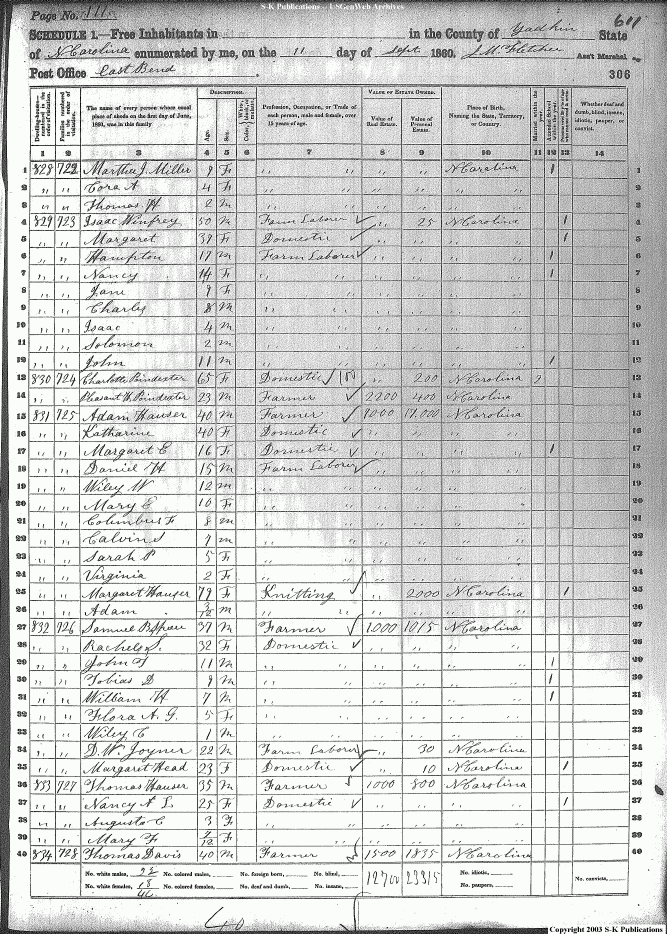 S-K Publications -- USGenWeb Archives
Page No. 111
611
SCHEDULE 1.—Free Inhabitants in in the County of Yadkin State
of N Carolina enumerated by me, on the 11 day of Sept. 1860. J. M. Fletcher Ass't Marshal
Post Office East Bend . 306
Dwelling-houses— numbered in the order of visitation.
Families numbered in the order of visitation.
The name of every person whose usual place of abode on the first day of June, 1860, was in this family
DESCRIPTION.
Age.
Sex.
Color,
Profession, Occupation, or Trade of each person, male and female, over 15 years of age.
VALUE OF ESTATE OWNED.
Value of Real Estate.
Value of Personal Estate.
Place of Birth, Naming the State, Territory, or Country.
Married within the year.
Attended School within the year.
Whether deaf and dumb, blind, insane, idiotic, pauper, or convict.
1 2 3 4 5 6 7 8 9 10 11 12 13 14
1 828 722 Martha J. Miller 9 F " " " N Carolina 1 1
2 " " Cora A 4 F " " " " 2
3 " " Thomas H 2 M " " " " 3
4 829 723 Isaac Winfrey 50 M Farm Laborer " 25 N Carolina 1 4
5 " " Margaret 39 F Domestic " " " 1 5
6 " " Hampton 17 M Farm Laborer " " " 1 6
7 " " Nancy 14 F " " " " 1 7
8 " " Jane 9 F " " " " 8
9 " " Charles 8 M " " " " 9
10 " " Isaac 4 M " " " " 10
11 " " Solomon 2 M " " " " 11
12 " " John 11 M " " " " 1 12
13 830 724 Charlotte Poindexter 65 F Domestic " 200 N Carolina 13
14 " " Pleasant H. Poindexter 23 M Farmer 2200 400 N Carolina 14
15 831 725 Adam Hauser 40 M Farmer 1000 17,000 N Carolina 15
16 " " Katharine 40 F Domestic " " " 16
17 " " Margaret E 16 F Domestic " " " 1 17
18 " " Daniel H 15 M Farm Laborer " " " 18
19 " " Wiley W 12 M " " " " 19
20 " " Mary E 10 F " " " " 20
21 " " Columbus F 8 M " " " " 21
22 " " Calvin S 7 M " " " " 22
23 " " Sarah P 5 F " " " " 23
24 " " Virginia 2 F " " " " 24
25 " " Margaret Hauser 79 F Knitting 2000 N Carolina 1 25
26 " " Adam M " " " " 26
27 832 726 Samuel B Spear 37 M Farmer 1000 1015 N Carolina 27
28 " " Rachel S. 32 F Domestic " " " 28
29 " " John F 11 M " " " " 1 29
30 " " Tobias D 9 M " " " " 1 30
31 " " William H 7 M " " " " 1 31
32 " " Flora A. G. 5 F " " " " 32
33 " " Wiley C 1 M " " " " 33
34 " " D. W. Joyner 22 M Farm Laborer " 30 N Carolina 34
35 " " Margaret Head 23 F Domestic " 10 N Carolina 1 35
36 833 727 Thomas Hauser 35 M Farmer 1000 800 N Carolina 36
37 " " Nancy A L. 25 F Domestic " " " 1 37
38 " " Augusta C 3 F " " " " 38
39 " " Mary F F " " " " 39
40 834 728 Thomas Davis 40 M Farmer 1500 1835 N Carolina 40
No. white males, 22 No. colored males, No. foreign born, No. blind, 12700 23315 No. idiotic,
No. white females, 18 No. colored females, No. deaf and dumb, No. insane, No. paupers, No. convicts,
40
40
Copyright 2003 S-K Publications